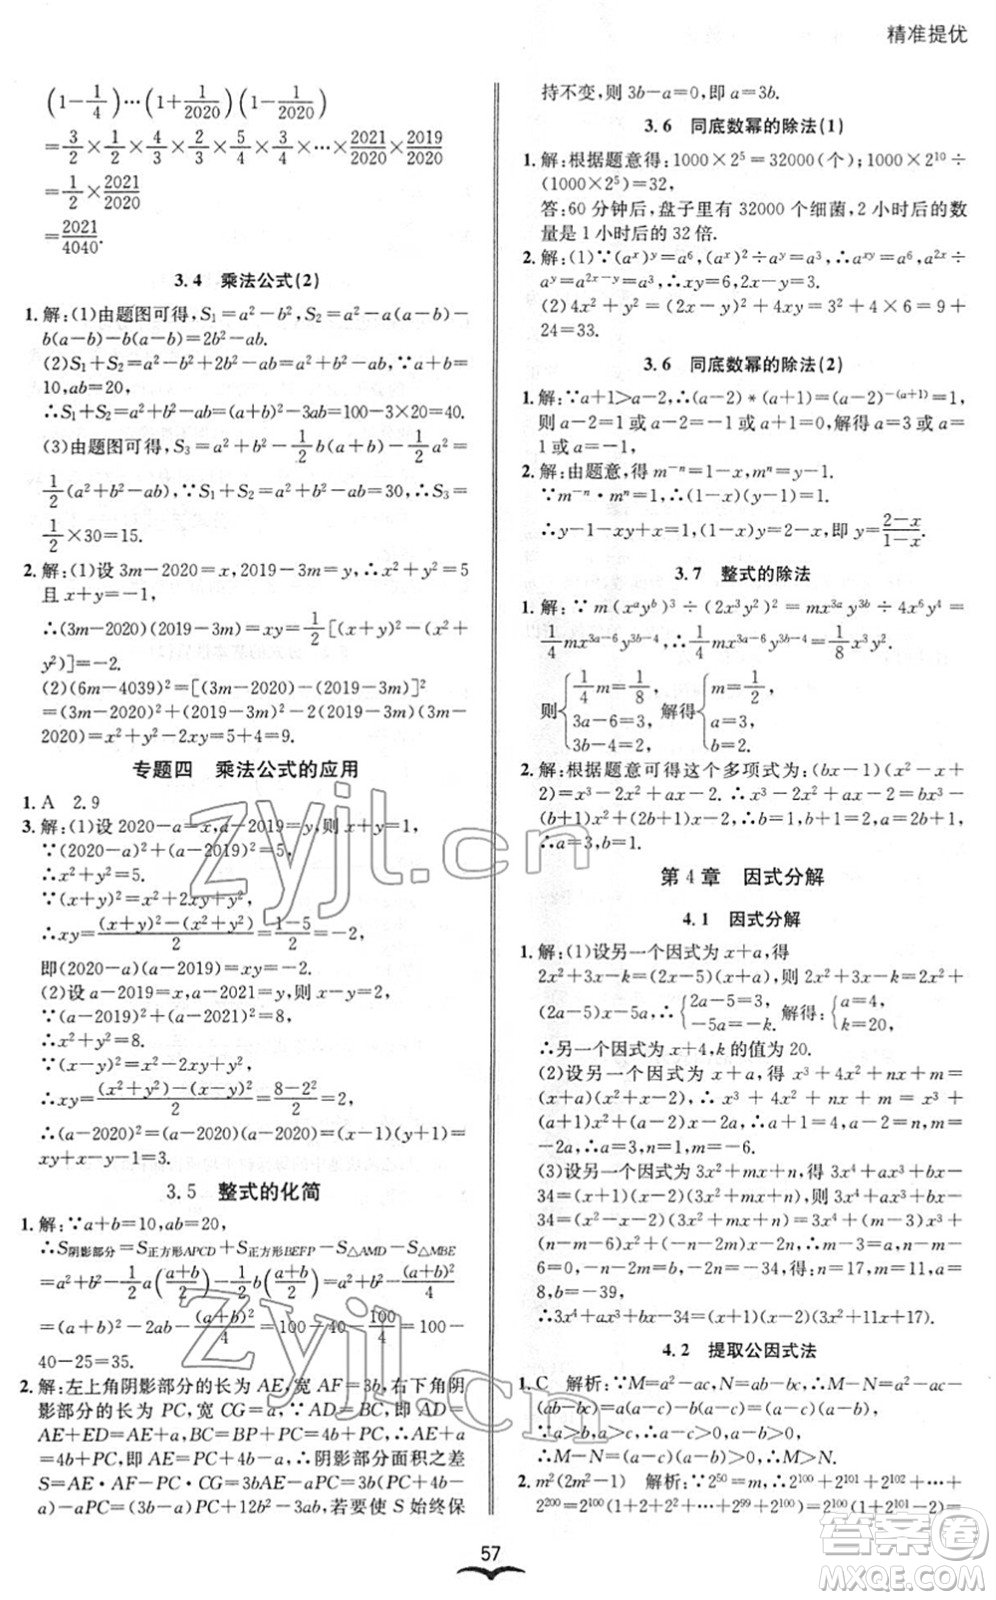 精准提优
(1-1/4)…(1+1/2020)(1-1/2020)
=3/2×1/2×4/3×2/3×5/4×3/4×…×2021/2020×2019/2020
=1/2×2021/2020
=2021/4040.
3.4 乘法公式(2)
1. 解:(1)由题图可得,S₁=a²-b²,S₂=a²-a(a-b)-
b(a-b)-b(a-b)=2b²-ab.
(2)S₁+S₂=a²-b²+2b²-ab=a²+b²-ab,∵a+b=
10,ab=20,
∴S₁+S₂=a²+b²-ab=(a+b)²-3ab=100-3×20=40.
(3)由题图可得,S₃=a²+b²-1/2b(a+b)-1/2a²=
1/2(a²+b²-ab),∵S₁+S₂=a²+b²-ab=30,∴S₃=
1/2×30=15.
2. 解:(1)设 3m-2020=x,2019-3m=y,∴x²+y²=5
且 x+y=-1,
∴(3m-2020)(2019-3m)=xy=1/2[(x+y)²-(x²+
y²)]=-2.
(2)(6m-4039)²=[(3m-2020)-(2019-3m)]²
=(3m-2020)²+(2019-3m)²-2(2019-3m)(3m-
2020)=x²+y²-2xy=5+4=9.
专题四 乘法公式的应用
1. A 2. 9
3. 解:(1)设 2020-a=x,a-2019=y,则 x+y=1,
∵(2020-a)²+(a-2019)²=5,
∴x²+y²=5.
∵(x+y)²=x²+2xy+y²,
∴xy=((x+y)²-(x²+y²))/2=(1-5)/2=-2,
即(2020-a)(a-2019)=-2.
(2)设 a-2019=x,a-2021=y,则 x-y=2,
∵(a-2019)²+(a-2021)²=8,
∴x²+y²=8.
∵(x-y)²=x²-2xy+y²,
∴xy=((x²+y²)-(x-y)²)/2=(8-2²)/2=2,
∴(a-2020)²=(a-2020)(a-2020)=(x-1)(y+1)=
xy+x-y-1=3.
3.5 整式的化简
1. 解:∵a+b=10,ab=20,
∴S阴影部分=S正方形APCD+S正方形BEFP-S△AMD-S△MBE
=a²+b²-1/2a((a+b)/2)-1/2b((a+b)/2)=a²+b²-(a+b)²/4
=(a+b)²-2ab-(a+b)²/4=100-40-100/4=100-
40-25=35.
2. 解:左上角阴影部分的长为 AE,宽 AF=3b,右下角阴
影部分的长为 PC,宽 CG=a,∵AD=BC,即 AD=
AE+ED=AE+a,BC=BP+PC=4b+PC,∴AE+
a=4b+PC,即 AE=PC+4b-a,∴阴影部分面积之差
S=AE·AF-PC·CG=3bAE-aPC=3b(PC+4b-
a)-aPC=(3b-a)PC+12b²-3ab,若要使 S 始终保
持不变,则 3b-a=0,即 a=3b.
3.6 同底数幂的除法(1)
1. 解:根据题意得:1000×2⁵=32000(个);1000×2¹⁰÷
(1000×2⁵)=32,
答:60 分钟后,盘子里有 32000 个细菌,2 小时后的数
量是 1 小时后的 32 倍.
2. 解:(1)∵(aˣ)ʸ=a⁶,(aˣ)²÷aʸ=a³,∴aˣʸ=a⁶,a²ˣ÷
aʸ=a²ˣ⁻ʸ=a³,∴xy=6,2x-y=3.
(2)4x²+y²=(2x-y)²+4xy=3²+4×6=9+
24=33.
3.6 同底数幂的除法(2)
1. 解:∵a+1>a-2,∴(a-2)*(a+1)=(a-2)⁻⁽ᵃ⁺¹⁾=1,
则 a-2=1 或 a-2=-1 或 a+1=0,解得 a=3 或 a=
1 或 a=-1,
2. 解:由题意,得 m⁻ⁿ=1-x,mⁿ=y-1.
∵m⁻ⁿ·mⁿ=1,∴(1-x)(y-1)=1,
∴y-1-xy+x=1,(1-x)y=2-x,即 y=(2-x)/(1-x).
3.7 整式的除法
1. 解:∵m(xᵃyᵇ)³÷(2x³y²)²=mx³ᵃy³ᵇ÷4x⁶y⁴=
1/4mx³ᵃ⁻⁶y³ᵇ⁻⁴,∴1/4mx³ᵃ⁻⁶y³ᵇ⁻⁴=1/8x³y².
则{1/4m=1/8, 3a-6=3, 3b-4=2, 解得{m=1/2, a=3, b=2.
2. 解:根据题意可得这个多项式为:(bx-1)(x²-x+
2)=x³-ax²+3x-2. ∴x³-ax²+3x-2=bx³-
(b+1)x²+(2b+1)x-2. ∴b=1,b+1=a,2b+1=
3. ∴a=2,b=1.
第 4 章 因式分解
4.1 因式分解
1. 解:(1)设另一个因式为 x+a,得
2x²+3x-k=(2x-5)(x+a),则 2x²+3x-k=2x²+
(2a-5)x-5a,∴{2a-5=3, -5a=-k. 解得:{a=4, k=20,
∴另一个因式为 x+4,k 的值为 20.
(2)设另一个因式为 x+a,得 x³+4x²+nx+m=
(x+a)(x²+2x-1),∴x³+4x²+nx+m=x³+
(2+a)x²+(2a-1)x-a,∴m=-a,n=2a-1,4=
2+a,∴a=2,n=3,m=-2,∴m-n²=-6.
(3)设另一个因式为 3x²+mx+n,得 3x⁴+ax³+bx-
34=(x+1)(x-2)(3x²+mx+n),则 3x⁴+ax³+bx-
34=(x²-x-2)(3x²+mx+n)=3x⁴+(m-3)x³+
(n-m-6)x²+(-2m-n)x-2n,∴-2n=-34,n-m-
6=0,m-3=a,-2m-n=b,得:n=17,m=11,a=8,
b=-39,
∴3x⁴+8x³+bx-34=(x+1)(x-2)(3x²+11x+17).
4.2 提取公因式法
1. C 解析:∵M=a²-ac,N=ab-bc,∴M-N=a²-ac-
(ab-bc)=a(a-c)-b(a-c)=(a-c)(a-b).
∵a>b,a>c,∴a-b>0,a-c>0,
∴M-N=(a-c)(a-b)>0,∴M>N.
2. m²(2m²-1) 解析:∵2⁵⁰=m,∴2¹⁰⁰+2¹⁰¹+2¹⁰²+…+
2²⁰⁰=2¹⁰⁰(1+2+2²+…+2⁹⁹+2¹⁰⁰)=2¹⁰⁰(1+2¹⁰¹-2)=
57
zyjl.cn
zyjl.cn
答案圈
MXQE.COM